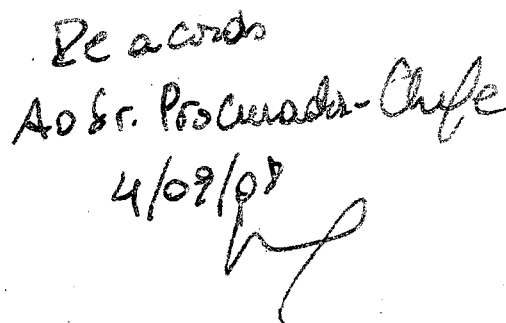 De acordo
Ao Sr. Procurador-Chefe
4/09/08